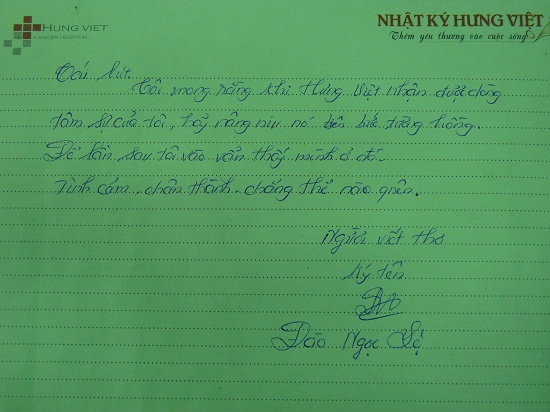 HUNG VIET
CANCER HOSPITAL
NHẬT KÝ HƯNG VIỆT
Thêm yêu thương vào cuộc sống
Tái bút.
Tôi mong rằng khi Hưng Việt nhận được dòng
tâm sự của tôi, hãy nâng niu nó bức tường hồng.
Để lần sau tôi vào vẫn thấy mình ở đó.
Tình cảm chân thành chẳng thể nào quên.
Người viết thơ
Ký tên
Đào Ngọc